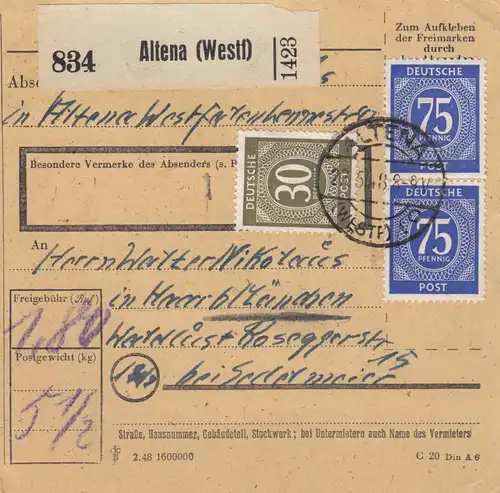 834
Altena (Westf)
1423
Zum Aufkleben
der Freimarken
durch
Abse
in Altena Westfalen
DEUTSCHE
75
PFENNIG
POST
DEUTSCHE
30
POST
ALTENA
(WESTF)
75
PFENNIG
POST
Besondere Vermerke des Absenders (s. R
An
Herrn Walter Nikolaus
in Haar b/München
Waldlust Roseggerstr
15
bei Sedlmeier
Freigebühr (Rpf)
1,80
Postgewicht (kg)
5 1/2
Straße, Hausnummer, Gebäudeteil, Stockwerk; bei Untermietern auch Name des Vermieters
2.48 1600000
C 20 Din A 6